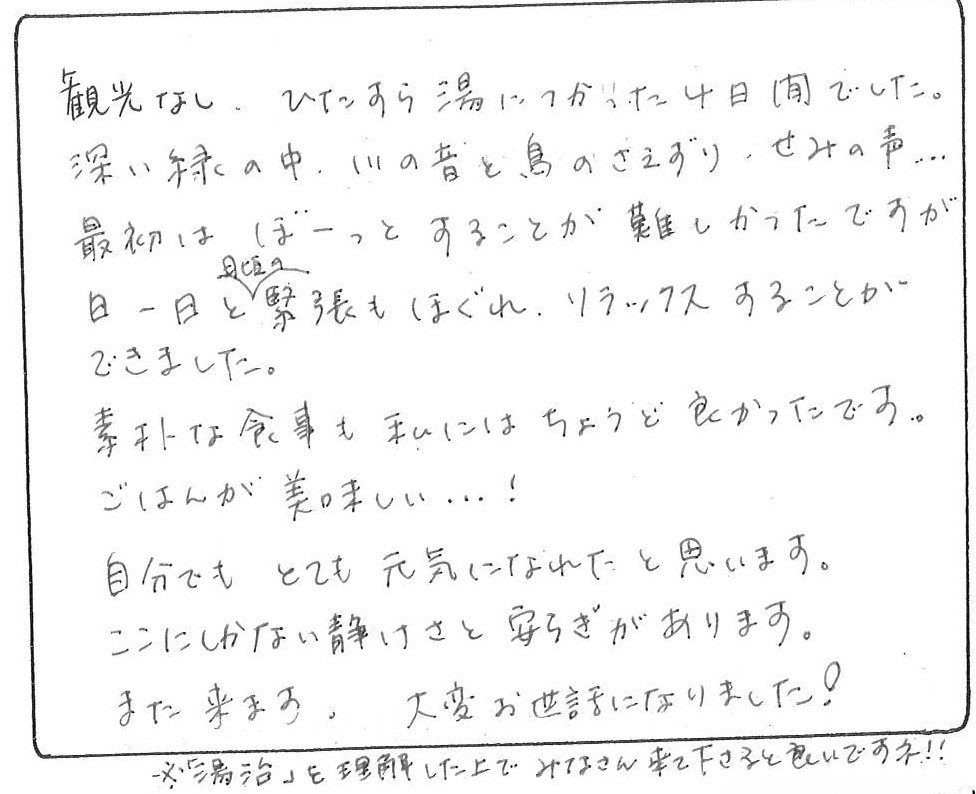 観光なし、ひたすら湯につかった4日間でした。
深い緑の中、川の音と鳥のさえずり、せみの声…
最初は ぼーっと することが 難しかったですが
日一日と日頃の緊張もほぐれ、リラックスすることが
できました。
素朴な食事も 私にはちょうど良かったです。
ごはんが 美味しい…!
自分でも とても 元気になれたと思います。
ここにしかない静けさと 安らぎがあります。
また来ます。 大変お世話になりました!
※「湯治」を理解した上で みなさん来て下さると良いですネ!!